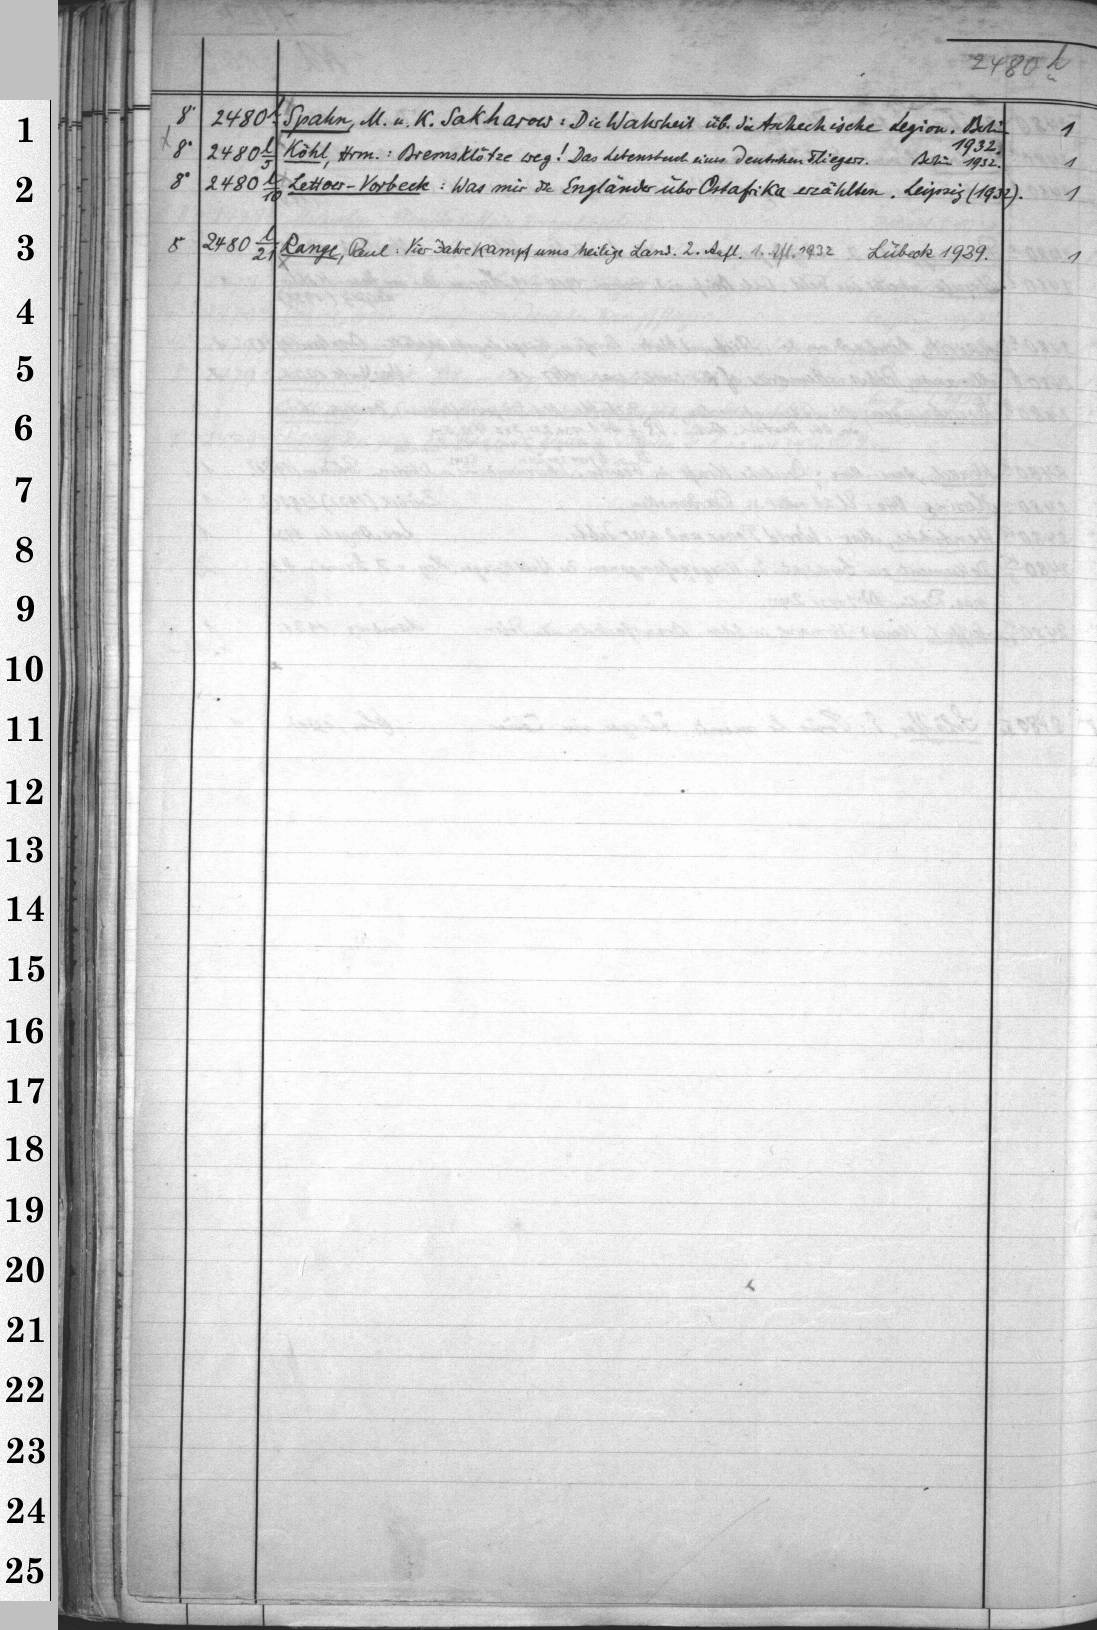 2480 l
8° 2480 l Spahn, M. u. K. Sakharow: Die Wahrheit üb. die tschechische Legion. Berlin 1932. 1
8° 2480 l/5 Köhl, Hrm.: Bremsklötze weg! Das Lebensbuch eines deutschen Fliegers. Berlin 1932. 1
8° 2480 l/10 Lettow-Vorbeck: Was mir die Engländer über Ostafrika erzählten. Leipzig (1932). 1
8° 2480 l/21 Range, Paul: Vier Jahre Kampf ums heilige Land. 2. Aufl. 1. Afl. 1932 Lübeck 1939. 1
1
2
3
4
5
6
7
8
9
10
11
12
13
14
15
16
17
18
19
20
21
22
23
24
25